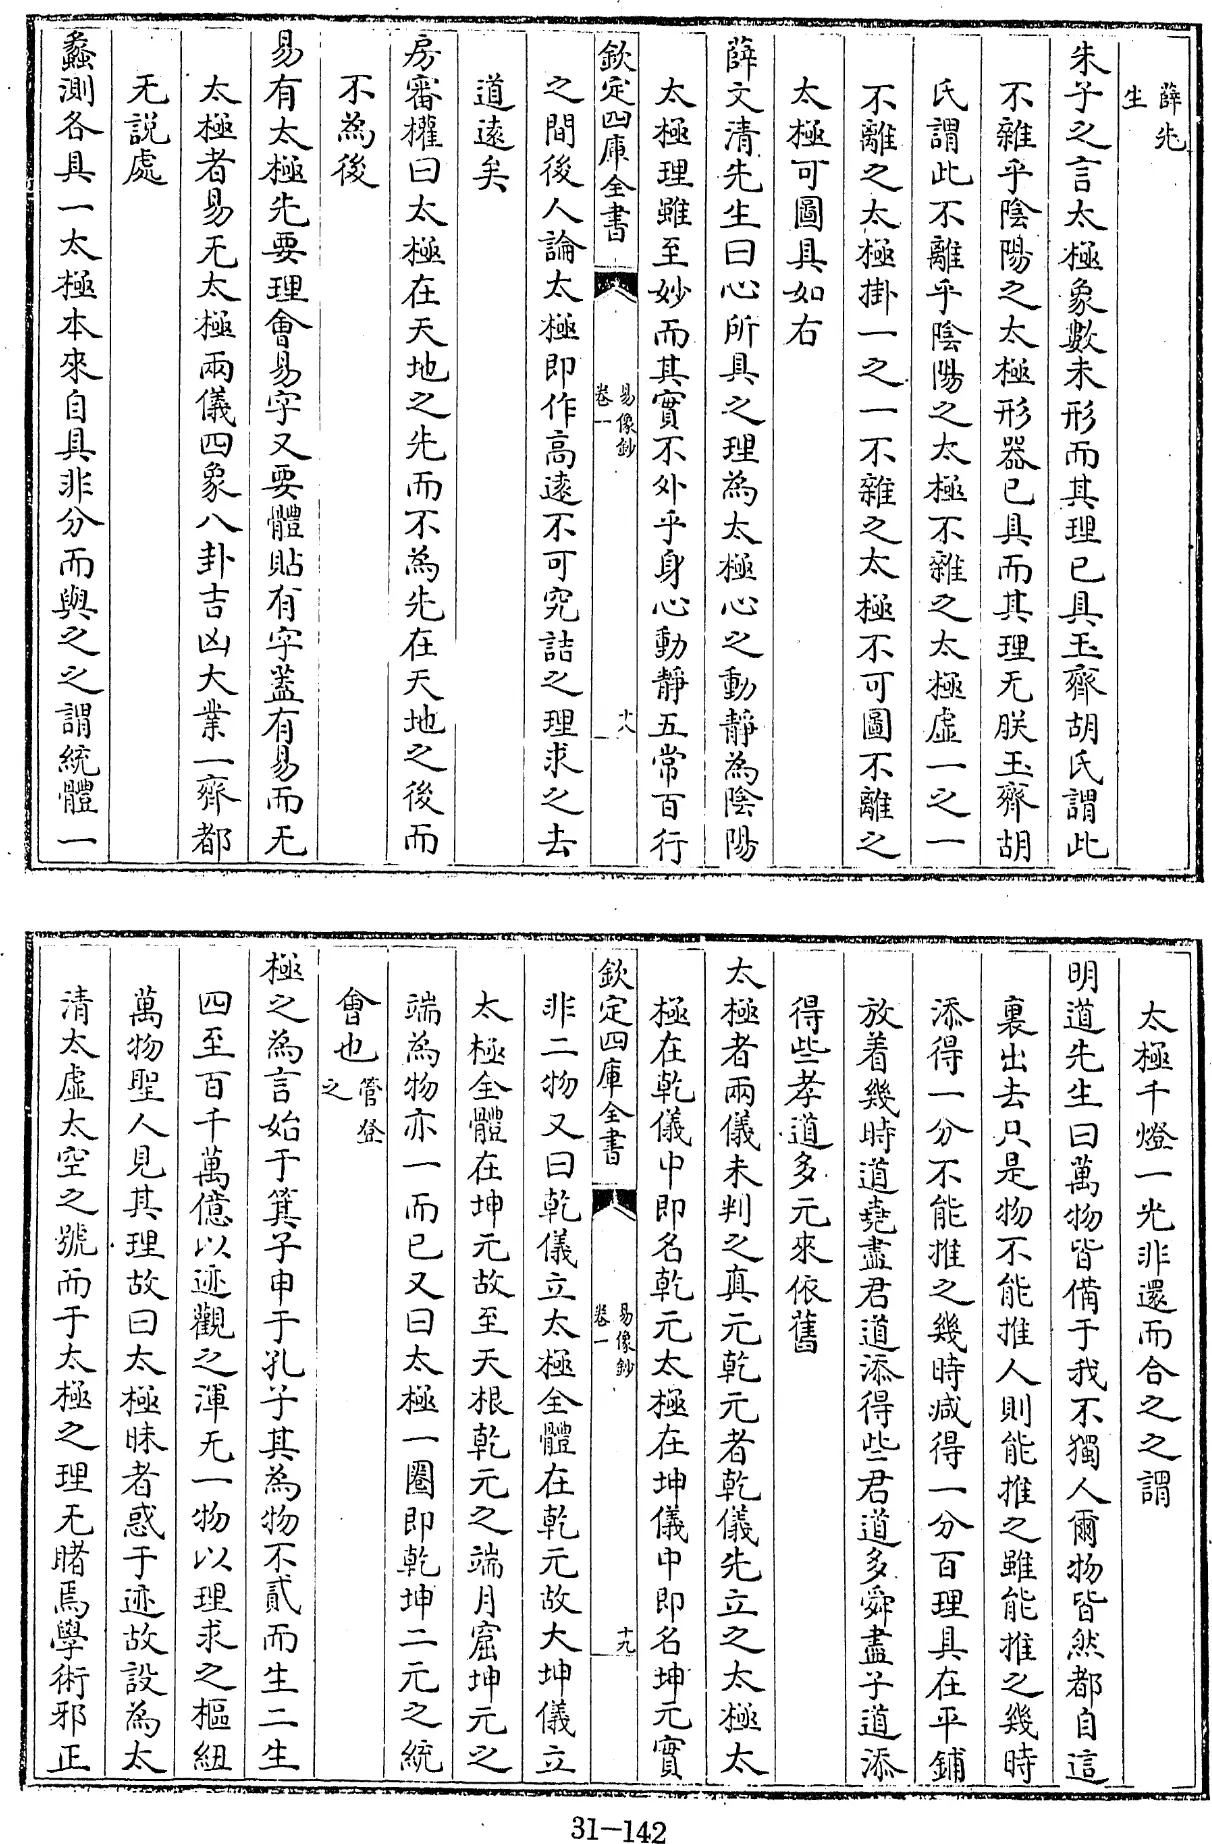 薛先
生
朱子之言太極象數未形而其理已具玉齊胡氏謂此
不雜乎陰陽之太極形器已具而其理无朕玉齊胡
氏謂此不離乎陰陽之太極不雜之太極虛一之一
不離之太極掛一之一不雜之太極不可圖不離之
太極可圖具如右
薛文清先生曰心所具之理為太極心之動靜為陰陽
太極理雖至妙而其實不外乎身心動靜五常百行
欽定四庫全書
易像鈔
卷一
十八
之間後人論太極即作高遠不可究詰之理求之去
道遠矣
房審權曰太極在天地之先而不為先在天地之後而
不為後
易有太極先要理會易字又要體貼有字蓋有易而无
太極者易无太極兩儀四象八卦吉凶大業一齊都
无說處
蠡測各具一太極本來自具非分而與之之謂統體一
太極千燈一光非還而合之之謂
明道先生曰萬物皆備于我不獨人爾物皆然都自這
裏出去只是物不能推人則能推之雖能推之幾時
添得一分不能推之幾時減得一分百理具在平鋪
放着幾時道堯盡君道添得些君道多舜盡子道添
得些孝道多元來依舊
太極者兩儀未判之真元乾元者乾儀先立之太極太
極在乾儀中即名乾元太極在坤儀中即名坤元實
欽定四庫全書
易像鈔
卷一
十九
非二物又曰乾儀立太極全體在乾元故大坤儀立
太極全體在坤元故至天根乾元之端月窟坤元之
端為物亦一而已又曰太極一圈即乾坤二元之統
會也
管登
之
極之為言始于箕子申于孔子其為物不貳而生二生
四至百千萬億以迹觀之渾无一物以理求之樞紐
萬物聖人見其理故曰太極昧者惑于迹故設為太
清太虛太空之號而于太極之理无睹焉學術邪正
31-142